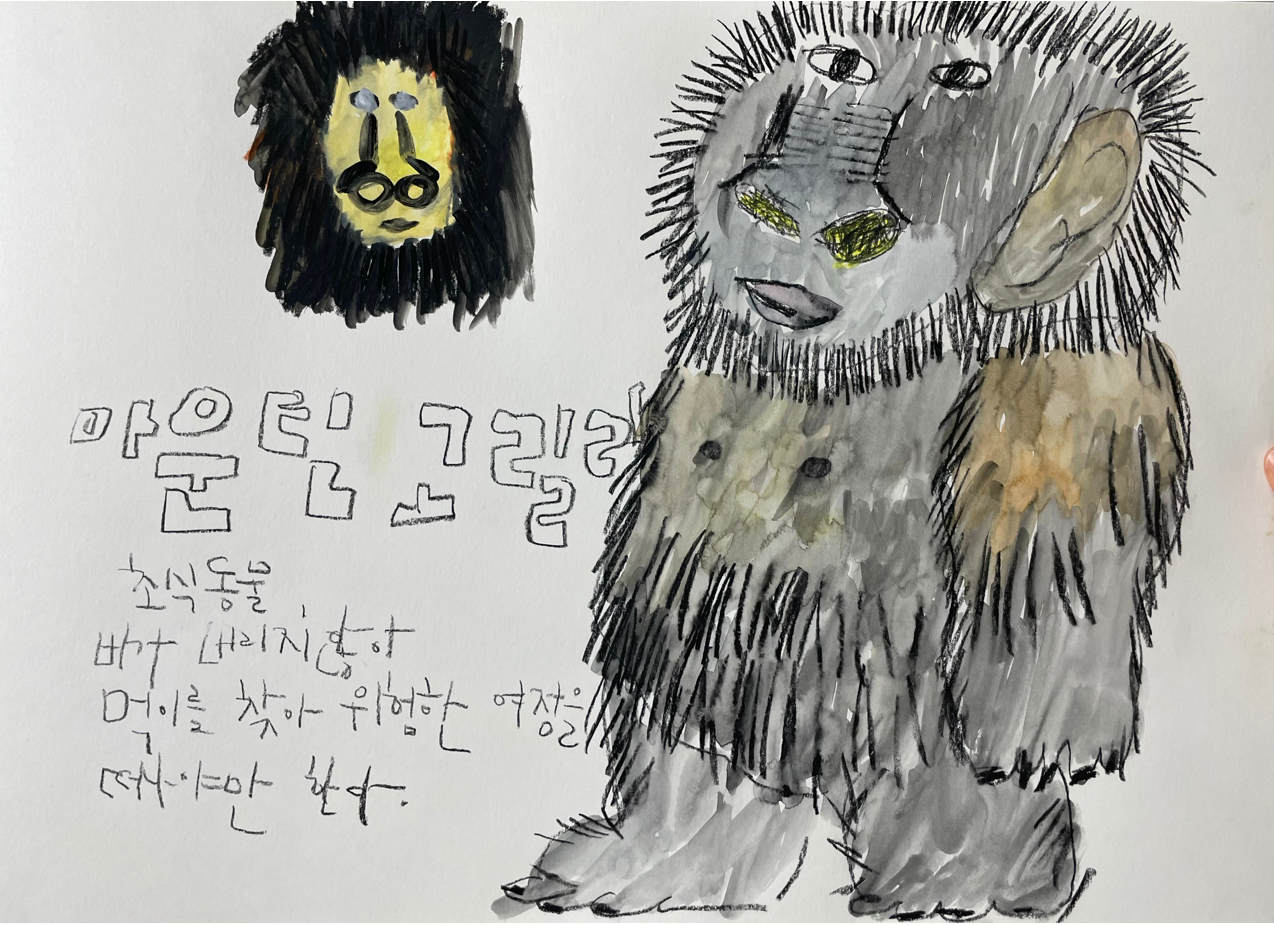 마운틴 고릴라
초식동물
비가 내리지않아
먹이를 찾아 위험한 여정을
떠나야만 한다.